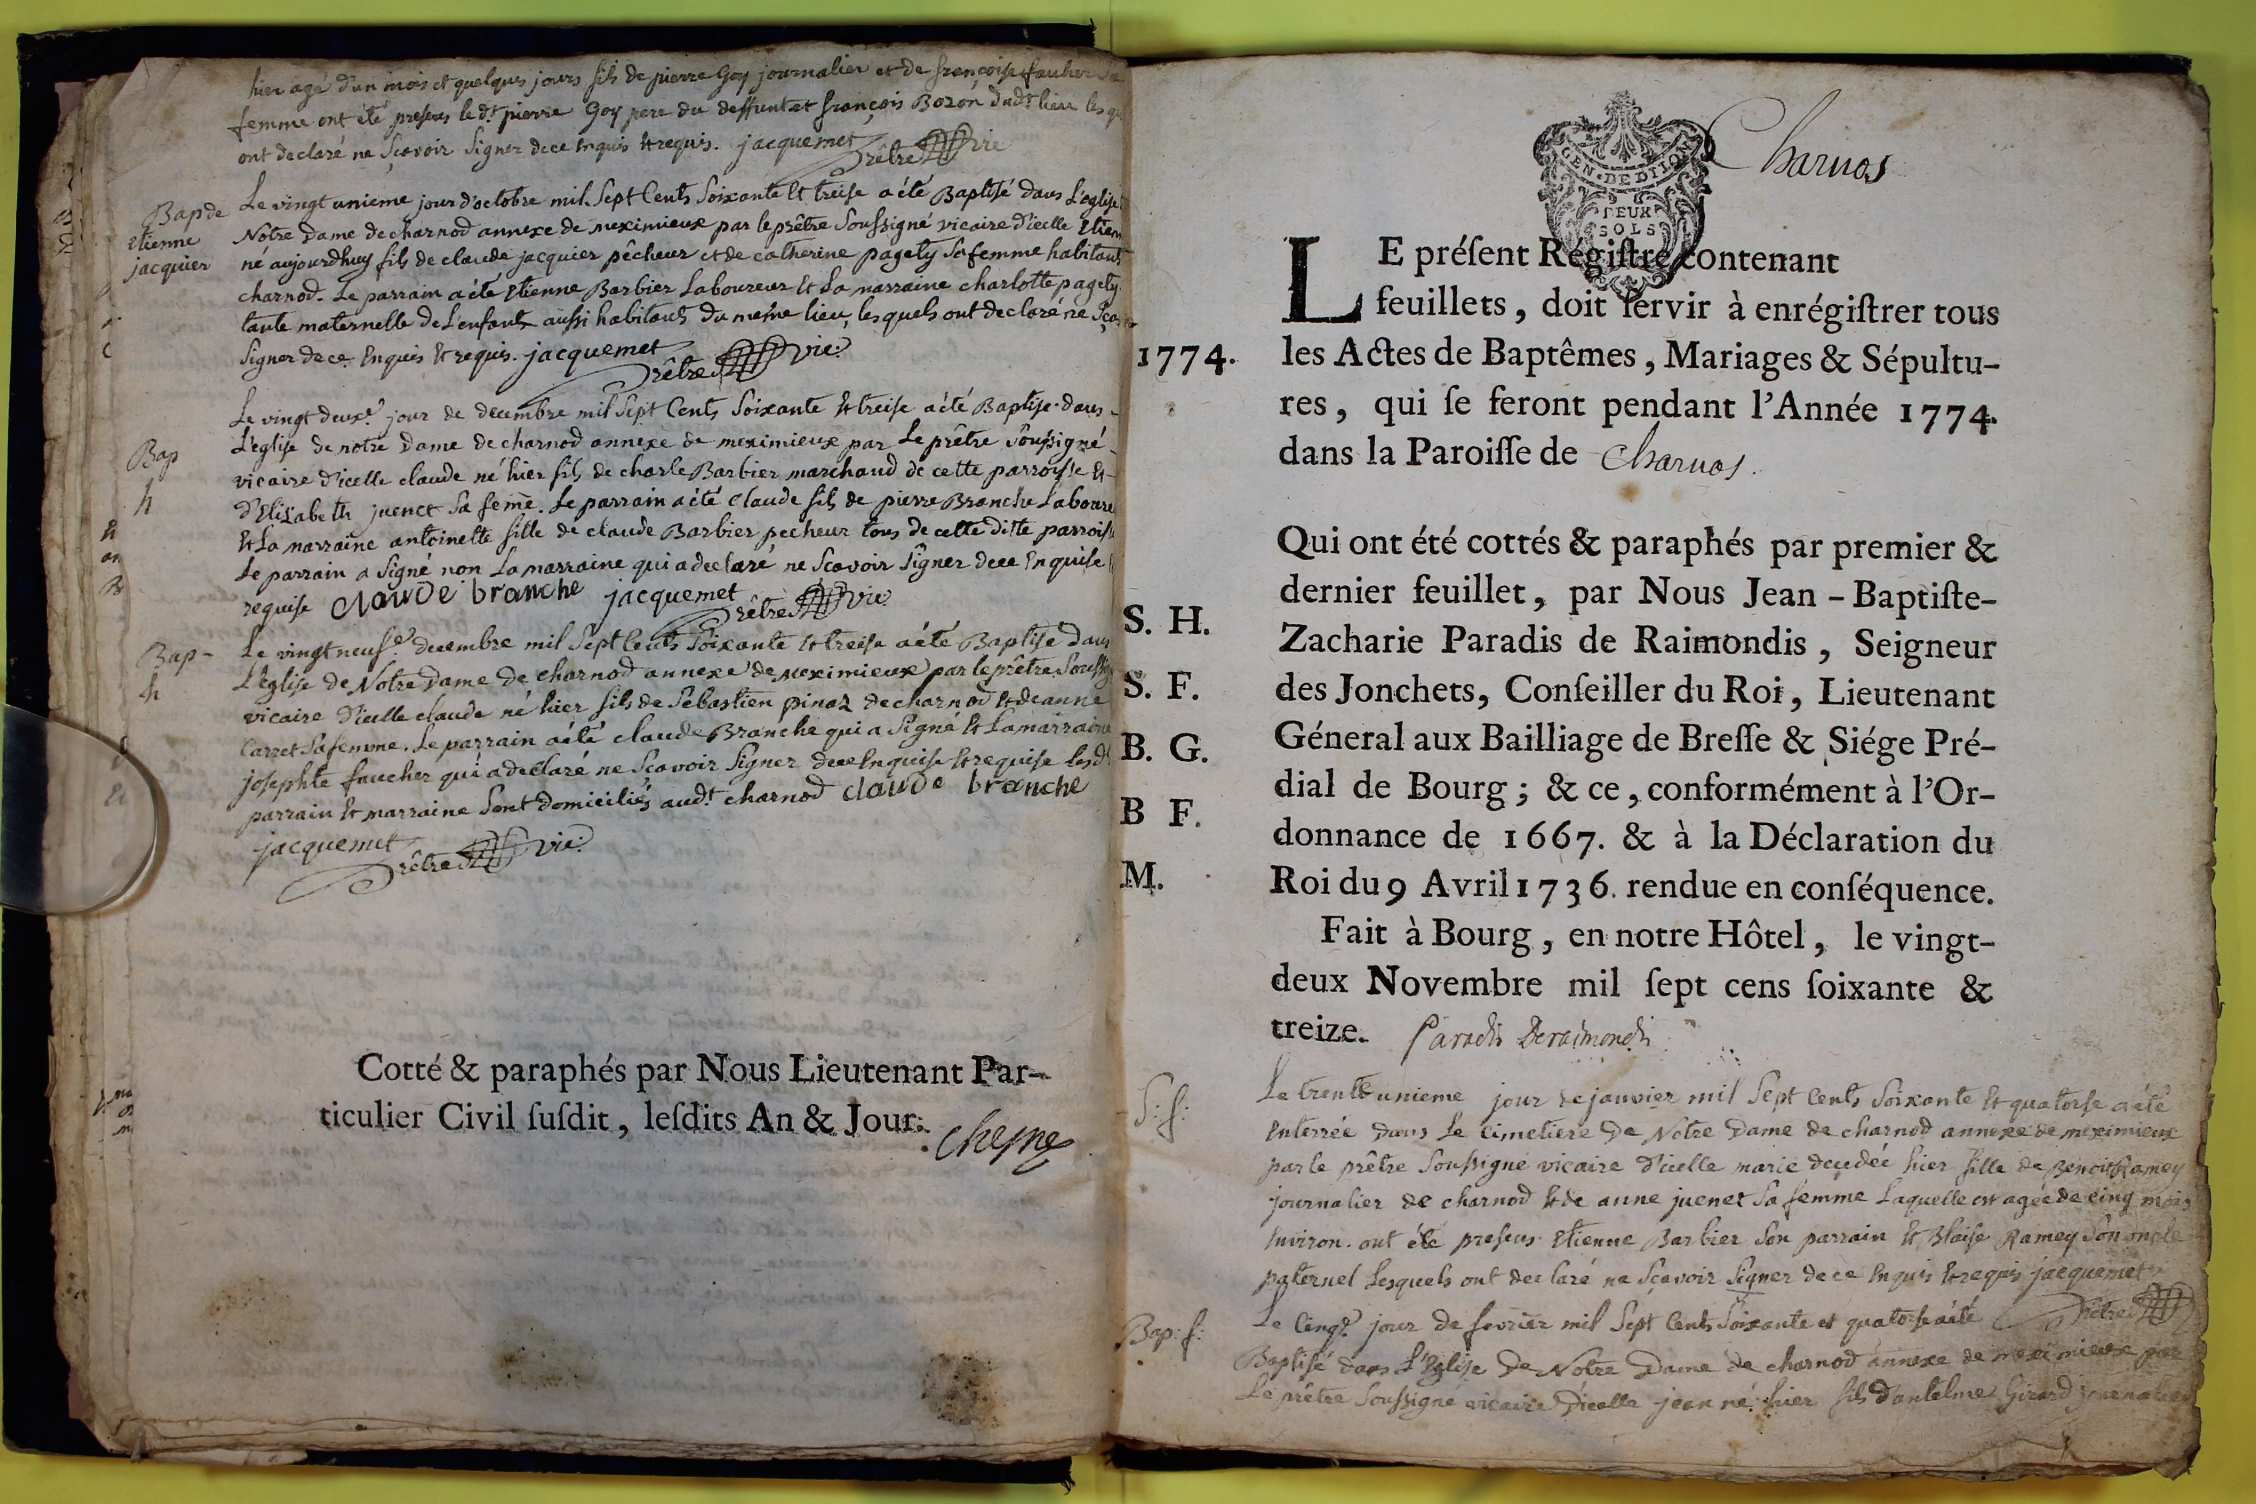 hier agé d'un mois et quelques jours fils de pierre Goy journalier et de françoise faucher sa
femme ont été presens le dt pierre Goy pere du deffunt et françois Bozon dudt lieu les
ont declaré ne Sçavoir Signer de ce Enquis & requis. jacquemet
Prêtre vic
Bap de
Etienne
jacquier
Le vingt unieme jour d'octobre mil Sept Cents Soixante & treise a été Baptisé dans L'eglise
Notre Dame de charnod annexe de meximieux par le prêtre Soussigné vicaire d'icelle Etien
né aujourdhuy fils de claude jacquier pêcheur et de catherine pagety Sa femme habitants
charnod. Le parrain a été Etienne Barbier Laboureur & La marraine charlotte pagety
tante maternelle de L'enfant aussi habitants du même lieu, lesquels ont declaré ne Sça
Signer de ce Enquis & requis. jacquemet
Prêtre vic.
Bap
h
Le vingt deuxe jour de decembre mil Sept Cents Soixante & treise a été Baptisé dans
L'eglise de notre Dame de charnod annexe de meximieux par Le prêtre Soussigné
vicaire d'icelle claude né hier fils de charle Barbier marchand de cette parroisse &
d'Elizabeth juenet Sa feme. Le parrain a été claude fils de pierre Branche Laboure
& La marraine antoinette fille de claude Barbier pecheur tous de cette ditte parroisse
Le parrain a Signé non La marraine qui a declaré ne Scavoir Signer de ce Enquise
requise claude branche jacquemet
Prêtre vic
Bap-
h
Le vingt neufe decembre mil Sept Cents Soixante & treise a été Baptisé dans
L'eglise de Notre Dame de charnod annexe de meximieux par le prêtre Soussig
vicaire d'icelle claude né hier fils de Sebastien pinaz de charnod & de anne
Carret Sa femme. Le parrain a été claude Branche qui a Signé & La marraine
josephte faucher qui a declaré ne Scavoir Signer de ce Enquise & requise les d
parrain & marraine Sont domiciliés audt charnod claude branche
jacquemet
Prêtre vic.
Cotté & paraphés par Nous Lieutenant Par-
ticulier Civil ſuſdit, leſdits An & Jour.
Charnos
GEN. DE DIJON
DEUX
SOLS
LE préſent Régiſtre contenant
feuillets, doit ſervir à enrégiſtrer tous
1774. les Actes de Baptêmes, Mariages & Sépultu-
res, qui ſe feront pendant l'Année 1774.
dans la Paroiſſe de Charnos.
Qui ont été cottés & paraphés par premier &
dernier feuillet, par Nous Jean-Baptiſte-
S. H. Zacharie Paradis de Raimondis, Seigneur
S. F. des Jonchets, Conſeiller du Roi, Lieutenant
B. G. Géneral aux Bailliage de Breſſe & Siége Pré-
B F. dial de Bourg; & ce, conformément à l'Or-
donnance de 1667. & à la Déclaration du
M. Roi du 9 Avril 1736. rendue en conſéquence.
Fait à Bourg, en notre Hôtel, le vingt-
deux Novembre mil ſept cens ſoixante &
treize. Paradis Deraimondis
S: f:
Le trente unieme jour de janvier mil Sept Cents Soixante & quatorse a été
Enterrée dans Le Cimetiere de Notre Dame de charnod annexe de meximieux
par le prêtre Soussigné vicaire d'icelle marie decedée hier fille de Benoit Ramey
journalier de charnod & de anne juenet Sa femme Laquelle est agée de cinq mois
Environ. ont été presens Etienne Barbier Son parrain & Blaise Ramey Son oncle
paternel Lesquels ont declaré ne Sçavoir Signer de ce Enquis & requis jacquemet
Prêtre
Bap: f:
Le Cinqe jour de fevrier mil Sept Cents Soixante et quatorse a été
Baptisé dans L'Eglise de Notre Dame de charnod annexe de meximieux par
Le prêtre Soussigné vicaire d'icelle jean né hier fils d'antelme Girard journalier